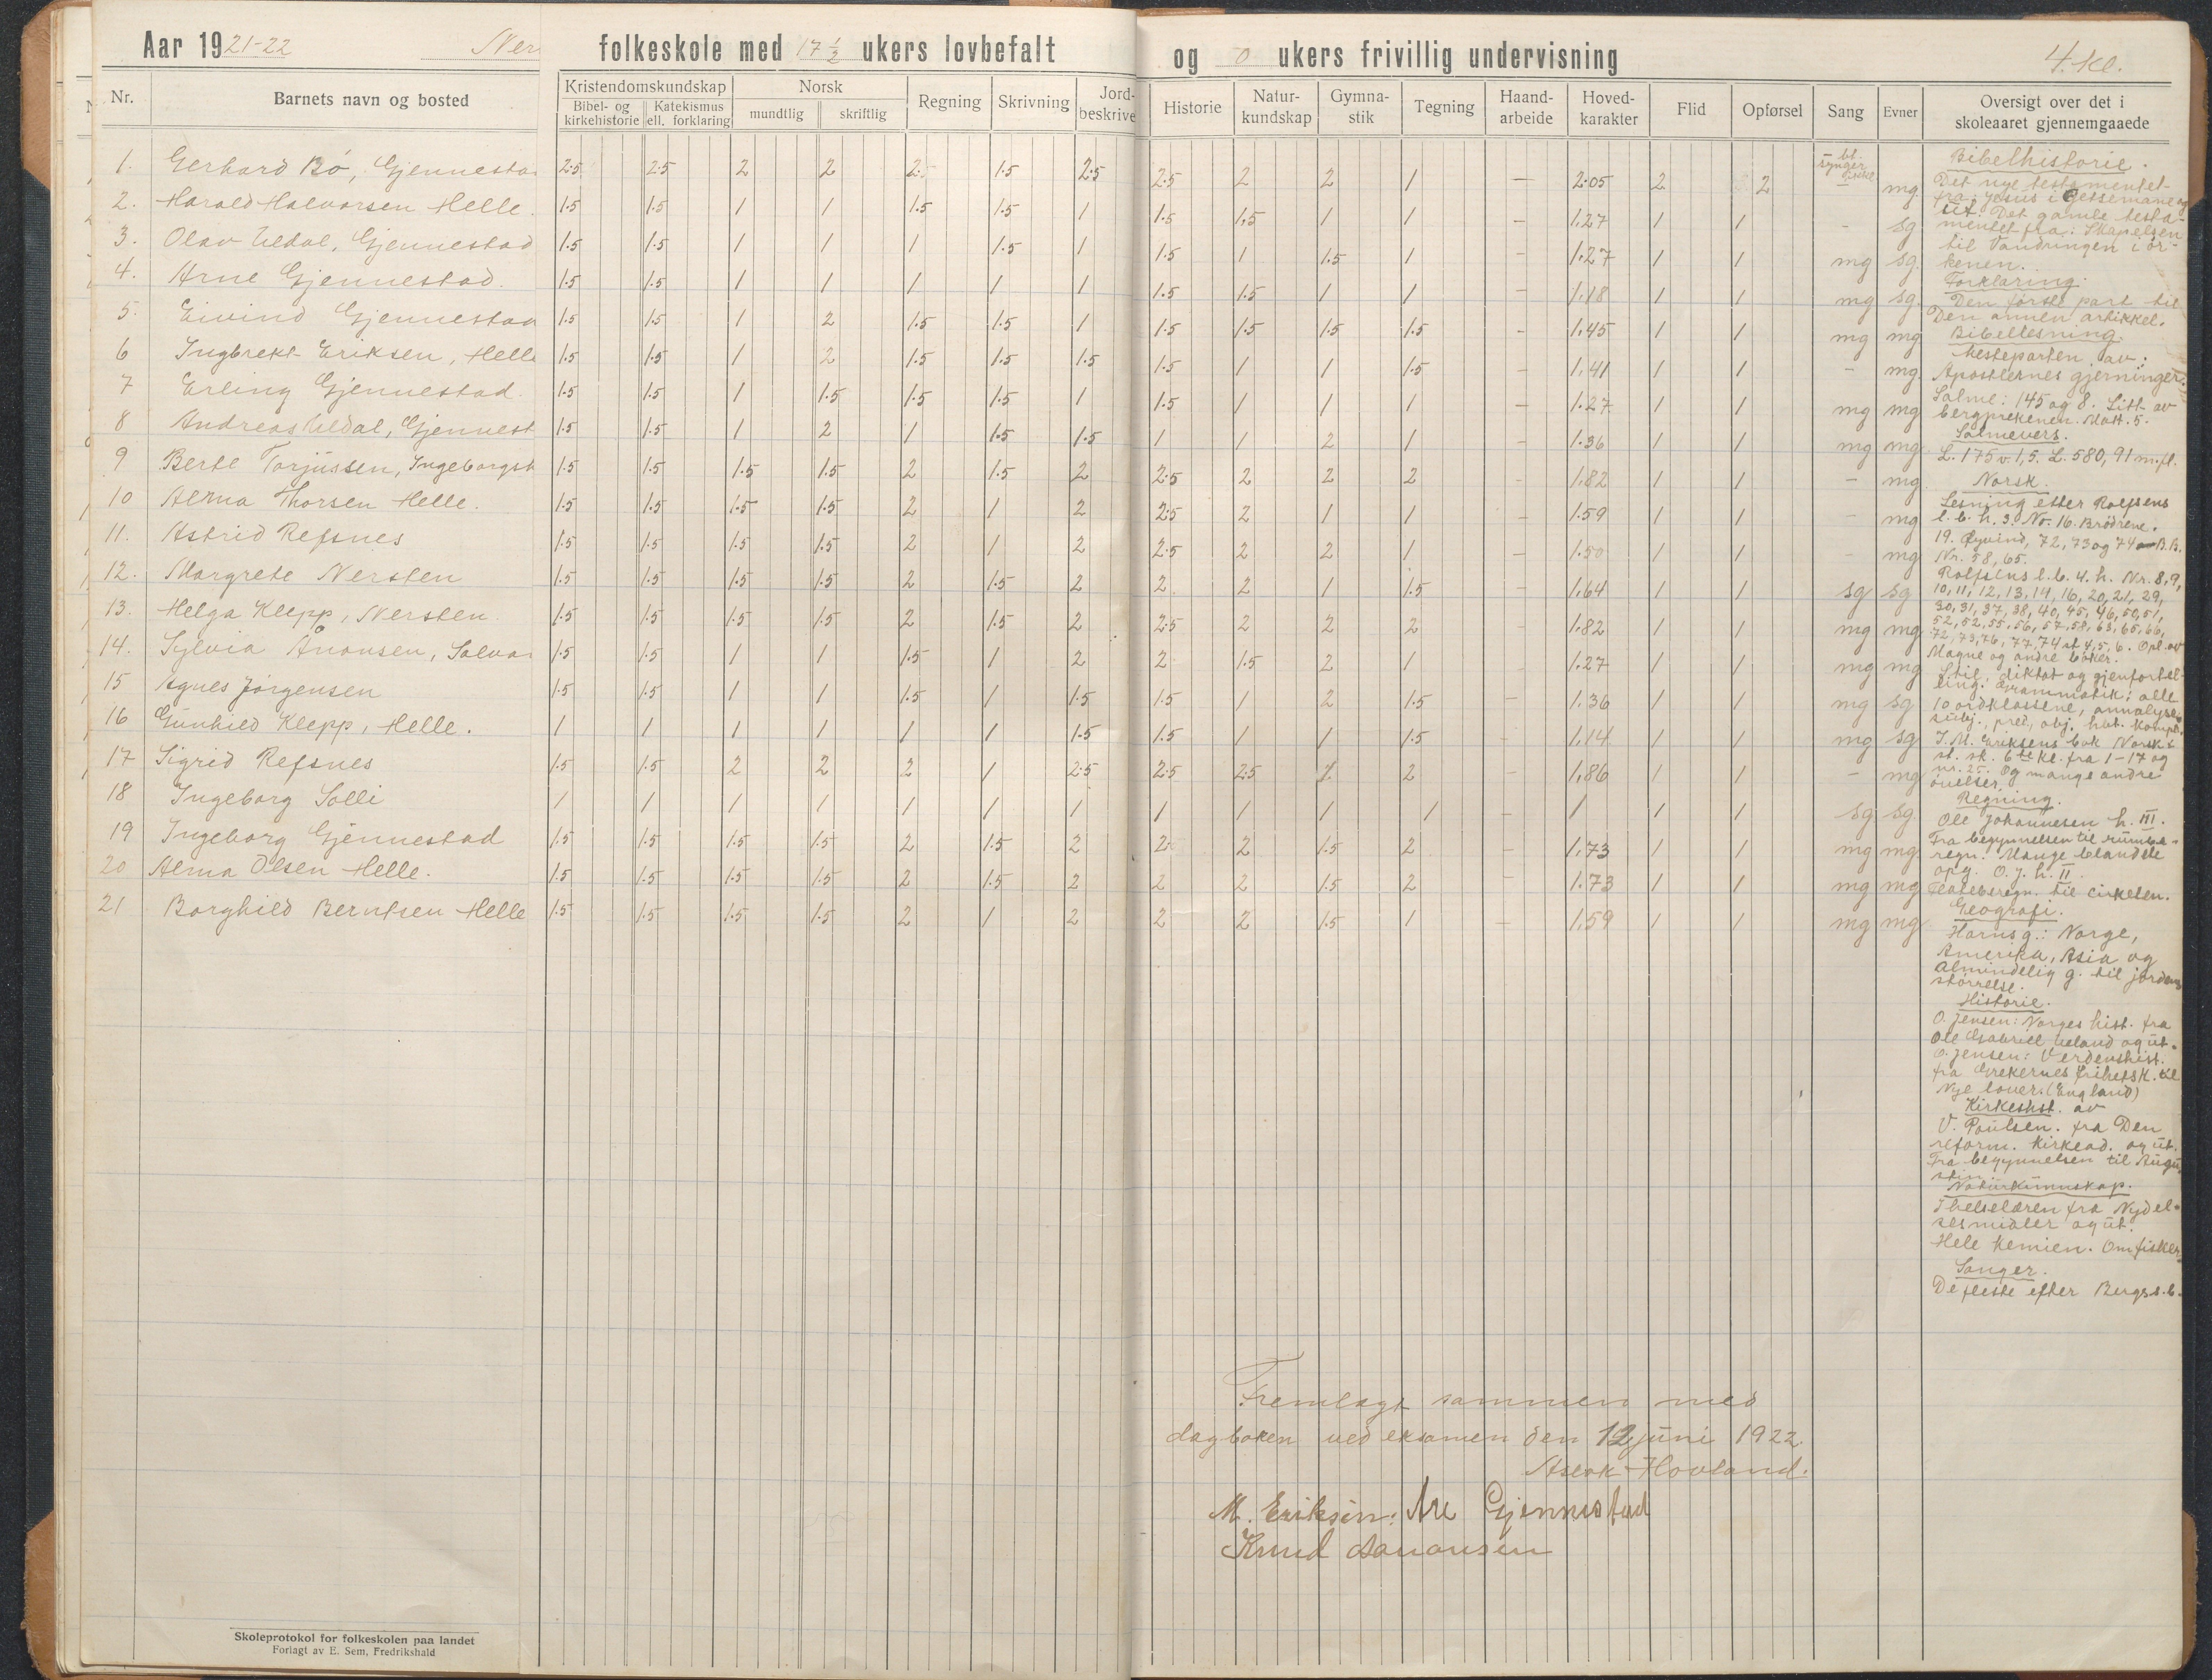 Aar 1921-22 Ner folkeskole med 17 1/2 ukers lovbefalt og 0 ukers frivillig undervisning 4. kl.
Nr. Barnets navn og bosted Kristendomskundskap Bibel- og kirkehistorie Katekismus ell. forklaring Norsk mundtlig skriftlig Regning Skrivning Jord- beskrive Historie Natur- kundskap Gymna- stik Tegning Haand- arbeide Hoved- karakter Flid Opførsel Sang Evner Oversigt over det i skoleaaret gjennemgaaede
1. Gerhard Bö, Gjennesta 2.5 2.5 2 2 2.5 1.5 2.5 2.5 2 2 1 — 2.05 2 2 synger ikke mg.
2. Harald Halvorsen Helle. 1.5 1.5 1 1 1.5 1.5 1 1.5 1.5 1 1 - 1.27 1 1 - sg
3. Olav Uedal, Gjennestad 1.5 1.5 1 1 1 1.5 1 1.5 1 1.5 1 - 1.27 1 1 mg sg.
4. Arne Gjennestad. 1.5 1.5 1 1 1 1 1 1.5 1.5 1 1 - 1.18 1 1 mg sg.
5. Eivind Gjennestad 1.5 1.5 1 2 1.5 1.5 1 1.5 1.5 1.5 1.5 - 1.45 1 1 mg mg
6 Ingbrekt Eriksen, Helle 1.5 1.5 1 2 1.5 1.5 1.5 1.5 1 1 1.5 - 1.41 1 1 - mg.
7 Erling Gjennestad. 1.5 1.5 1 1.5 1.5 1.5 1 1.5 1 1 1 - 1.27 1 1 mg mg
8 Andreas Uedal, Gjennest 1.5 1.5 1 2 1 1.5 1.5 1 1 2 1 - 1.36 1 1 mg mg
9 Berte Torjussen, Ingeborgst 1.5 1.5 1.5 1.5 2 1.5 2 2.5 2 2 2 - 1.82 1 1 - mg
10 Alma Thorsen Helle. 1.5 1.5 1.5 1.5 2 1 2 2.5 2 1 1 - 1.59 1 1 - mg
11. Astrid Refsnes 1.5 1.5 1.5 1.5 2 1 2 2.5 2 2 1 - 1.50 1 1 - mg
12. Margrete Nersten 1.5 1.5 1.5 1.5 2 1.5 2 2 2 1 1.5 - 1.64 1 1 sg sg
13. Helga Klepp, Nersten 1.5 1.5 1.5 1.5 2 1.5 2 2.5 2 2 2 - 1.82 1 1 mg mg
14. Sylvia Ånonsen, Salvar 1.5 1.5 1 1 1.5 1 2 2 1.5 2 1 - 1.27 1 1 mg mg
15 Agnes Jörgensen 1.5 1.5 1 1 1.5 1 1.5 1.5 1 2 1.5 - 1.36 1 1 mg sg
16 Gunhild Klepp, Helle. 1 1 1 1 1 1 1.5 1.5 1 1 1.5 - 1.14 1 1 mg sg
17 Sigrid Refsnes 1.5 1.5 2 2 2 1 2.5 2.5 2.5 2 2 - 1.86 1 1 - mg
18 Ingeborg Solli 1 1 1 1 1 1 1 1 1 1 1 - 1 1 1 sg sg.
19 Ingeborg Gjennestad 1.5 1.5 1.5 1.5 2 1.5 2 2 2 1.5 2 - 1.73 1 1 mg mg.
20 Alma Olsen Helle. 1.5 1.5 1.5 1.5 2 1.5 2 2 2 1.5 2 - 1.73 1 1 mg mg
21 Borghild Berntsen Helle 1.5 1.5 1.5 1.5 2 1 2 2 2 1.5 1 - 1.59 1 1 mg mg
Bibelhistorie.
Det nye testamentet
fra: Jesus i Getsemane og
ut. Det gamle testa-
mentet fra: Skapelsen
til Vandringen i ör-
kenen.
Forklaring.
Den förste part til
Den annen artikkel.
Bibellesning.
Mesteparten av:
Apostlernes gjerninger.
Salme: 145 og 8. Litt av
bergprekenen. Matt. 5.
Salmevers.
L. 175 v. 1,5. L. 580, 91 m.fl.
Norsk.
Lesning etter Rolfsens
l.b. h. 3. No. 16. Brödrene.
19. Öyvind, 72, 73 og 74 B.B.
Nr. 58, 65.
Rolfsens l.b. 4. h. Nr. 8, 9,
10, 11, 12, 13, 14, 16, 20, 21, 29,
30, 31, 37, 38, 40, 45, 46, 50, 51,
52, 52, 55, 56, 57, 58, 63, 65, 66,
72, 73, 76, 77, 74 st 4, 5, 6. Opl. av
Magne og andre böker.
Stil, diktat og gjenfortel-
ling. Grammatik: alle
10 ordklassene, annalyse,
subj., pred., obj.
J. M. Eriksens bok Norsk
fra 1-17 og
nr. 25. Og mange andre
övelser.
Regning.
Ole Johannesen h. III.
Fra begynnelsen til
regn. Mange blandede
opg. O. J. h. II.
Flateberegn. til cirkelen.
Geografi.
Horns g.: Norge,
Amerika, Asia og
almindelig g. til jordens
störrelse.
Historie.
O. Jensen: Norges hist. fra
Ole Gabriel Ueland og ut.
O. Jensen: Verdenshist.
fra Grekernes frihetsk. til
Nye lover. (England)
Kirkeshist. av
V. Poulsen. fra Den
reform. kirkead. og ut.
Fra begynnelsen til Augu
stin
Naturkunnskap.
Helselæren fra Nydel-
sesmidler og ut.
Hele Kemien. Om fisker
Sanger.
De fleste efter Bergs s.b.
Fremlagt sammen med
dagboken ved eksamen den 12 juni 1922.
Aslak Hovland.
M. Eriksen. Are Gjennestad
Knud Aanonsen
Skoleprotokol for folkeskolen paa landet
Forlagt av E. Sem, Fredrikshald